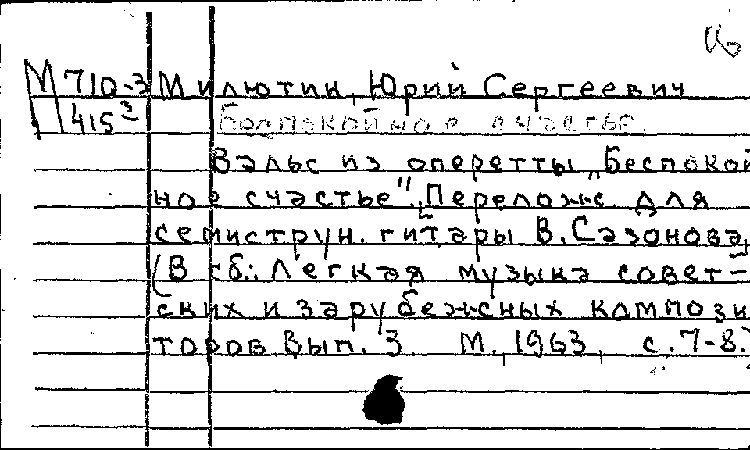 М 710-3 Милютин, Юрий Сергеевич
415³ Беспокойное счастье.
Вальс из оперетты „Беспокой
ное счастье". Перелож. для
семиструн. гитары В. Сазонова,
(В сб.: Легкая музыка совет-
ских и зарубежных компози
торов Вып. 3. М., 1963, с. 7-8.)